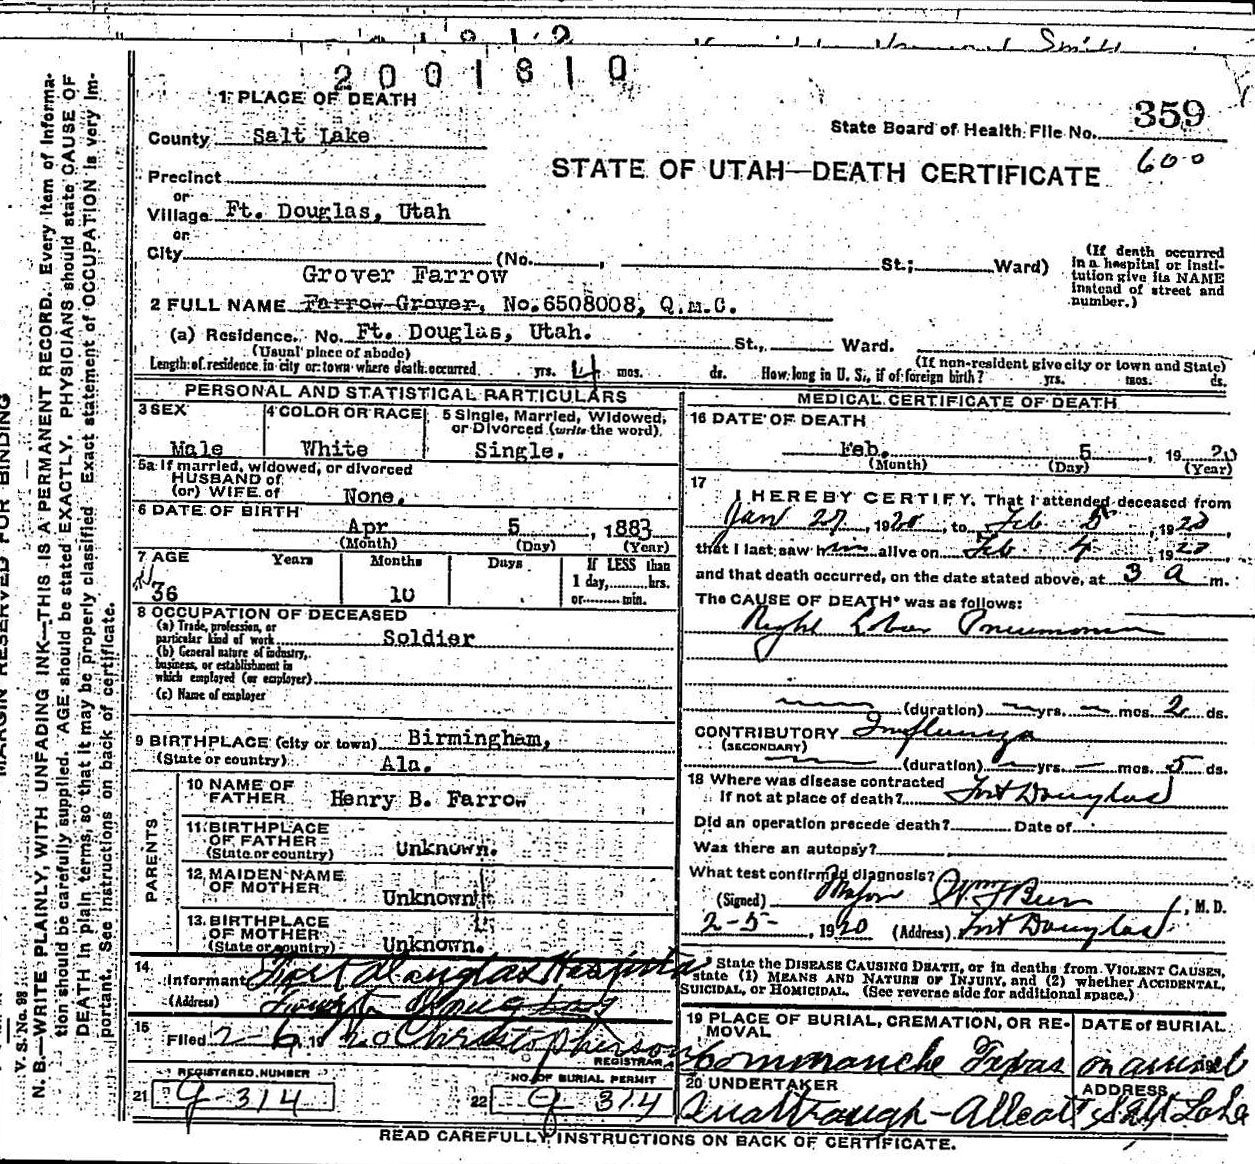 2001810
1 PLACE OF DEATH
County Salt Lake
State Board of Health File No. 359
600
STATE OF UTAH—DEATH CERTIFICATE
Precinct
or
Village Ft. Douglas, Utah
or
City (No. , St.; Ward)
(If death occurred in a hospital or institution give its NAME instead of street and number.)
Grover Farrow
2 FULL NAME Farrow Grover, No.6508008, Q.M.C.
(a) Residence. No. Ft. Douglas, Utah. St., Ward.
(Usual place of abode) (If non-resident give city or town and State)
Length of residence in city or town where death occurred yrs. 4 mos. ds. How long in U. S., if of foreign birth? yrs. mos. ds.
PERSONAL AND STATISTICAL PARTICULARS
3 SEX
Male
4 COLOR OR RACE
White
5 Single, Married, Widowed, or Divorced (write the word).
Single.
5a If married, widowed, or divorced
HUSBAND of
(or) WIFE of None.
6 DATE OF BIRTH
Apr 5 , 1883
(Month) (Day) (Year)
7 AGE Years Months Days If LESS than
1 day,........hrs.
or.........min.
36 10
8 OCCUPATION OF DECEASED
(a) Trade, profession, or
particular kind of work Soldier
(b) General nature of industry,
business, or establishment in
which employed (or employer)
(c) Name of employer
9 BIRTHPLACE (city or town) Birmingham,
(State or country) Ala.
PARENTS
10 NAME OF
FATHER Henry B. Farrow
11 BIRTHPLACE
OF FATHER
(State or country) Unknown.
12 MAIDEN NAME
OF MOTHER Unknown
13 BIRTHPLACE
OF MOTHER
(State or country) Unknown.
14
Informant Fort Douglas Hospital
(Address) Fort Douglas
15
Filed 2-6, 1920 Christopherson
REGISTRAR
REGISTERED NUMBER
21 g-314
NO. OF BURIAL PERMIT
22 g 314
MEDICAL CERTIFICATE OF DEATH
16 DATE OF DEATH
Feb. 5 , 19 20
(Month) (Day) (Year)
17
I HEREBY CERTIFY, That I attended deceased from
Jan 27, 1920, to Feb 5, 1920,
that I last saw him alive on Feb 4, 1920
and that death occurred, on the date stated above, at 3 a m.
The CAUSE OF DEATH* was as follows:
Right Lobar Pneumonia
(duration) yrs. mos. 2 ds.
CONTRIBUTORY Influenza
(SECONDARY)
(duration) yrs. mos. 5 ds.
18 Where was disease contracted
If not at place of death? Fort Douglas
Did an operation precede death? Date of
Was there an autopsy?
What test confirmed diagnosis?
(Signed) Major , M. D.
2-5-, 1920 (Address) Fort Douglas
* State the DISEASE CAUSING DEATH, or in deaths from VIOLENT CAUSES,
state (1) MEANS AND NATURE OF INJURY, and (2) whether ACCIDENTAL,
SUICIDAL, OR HOMICIDAL. (See reverse side for additional space.)
19 PLACE OF BURIAL, CREMATION, OR REMOVAL
Commanche Texas
DATE of BURIAL
on arrival
20 UNDERTAKER
ADDRESS
Salt Lake
READ CAREFULLY, INSTRUCTIONS ON BACK OF CERTIFICATE.
MARGIN RESERVED FOR BINDING
V. S. No. 98
N. B.—WRITE PLAINLY, WITH UNFADING INK—THIS IS A PERMANENT RECORD. Every item of information should be carefully supplied. AGE should be stated EXACTLY. PHYSICIANS should state CAUSE OF DEATH in plain terms, so that it may be properly classified. Exact statement of OCCUPATION is very important. See instructions on back of certificate.